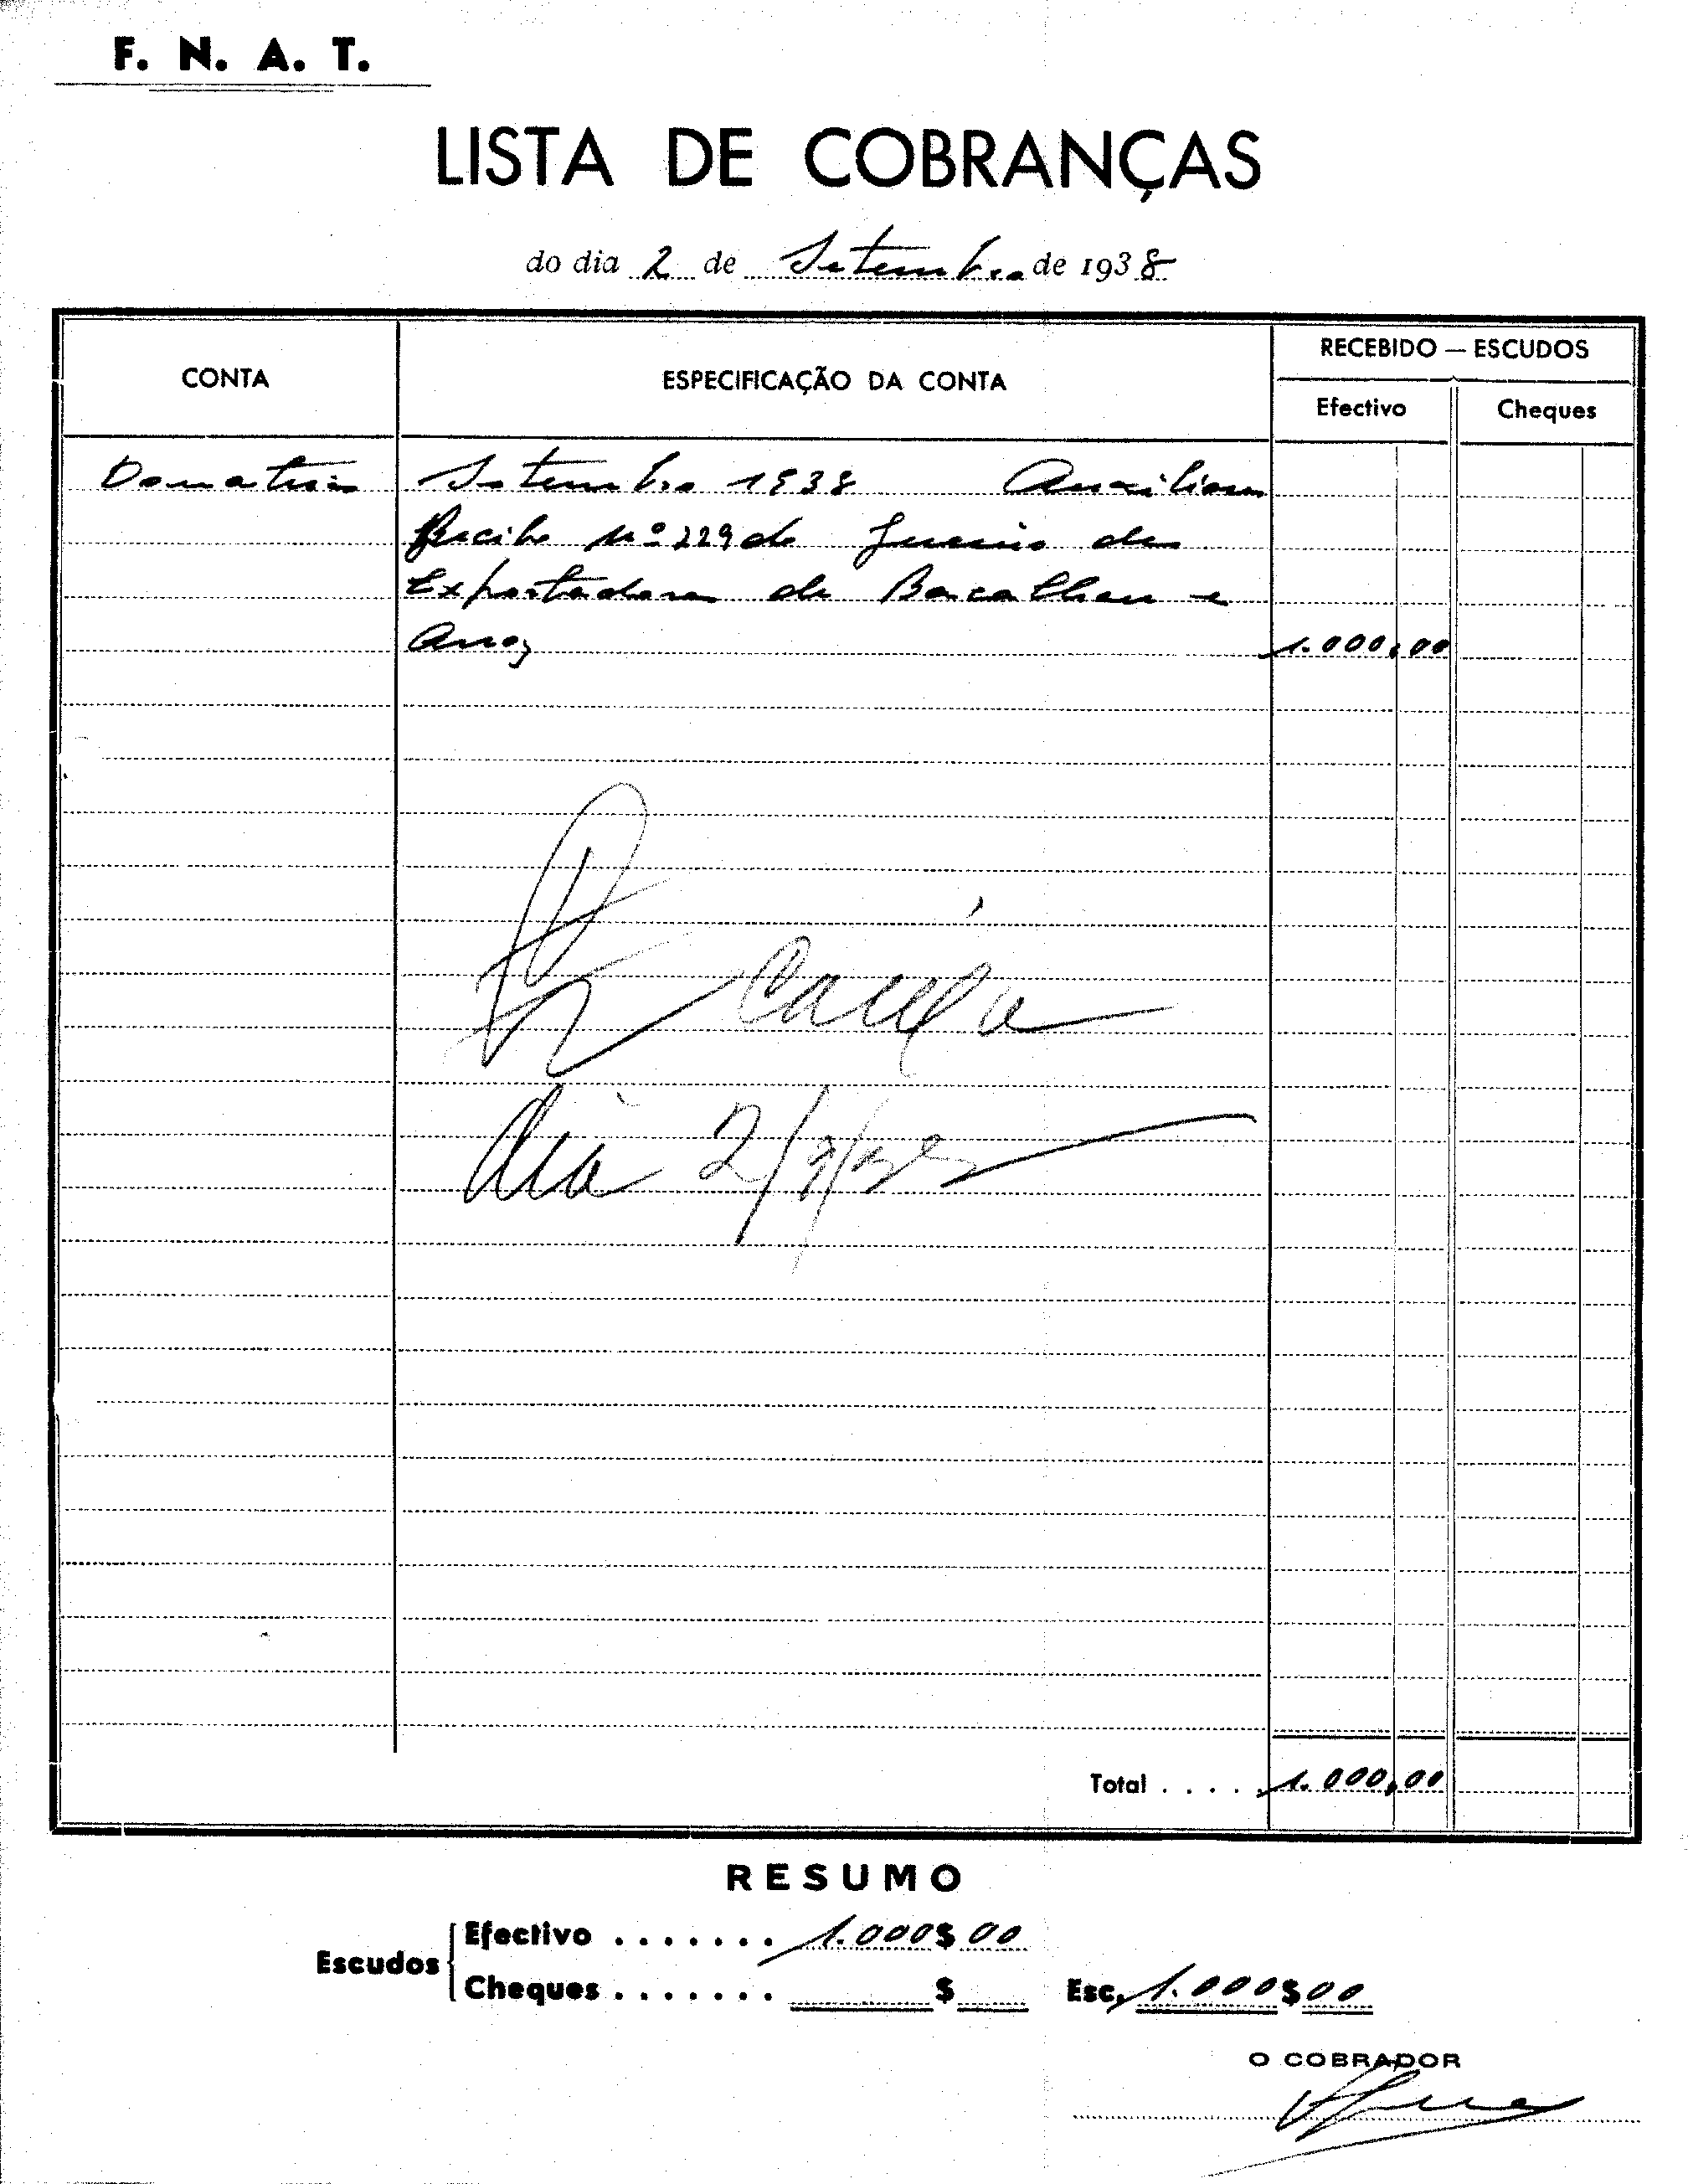 F. N. A. T.
LISTA DE COBRANÇAS
do dia 2 de Setembro de 1938
CONTA
ESPECIFICAÇÃO DA CONTA
RECEBIDO — ESCUDOS
Efectivo
Cheques
Donativos Setembro 1938
Recibo nº 229 do Gremio dos
Exportadores de Bacalhau e
Arroz 1.000,00
Caixa
dia 2/9/38
Total . . . . . 1.000,00
RESUMO
Escudos
Efectivo . . . . . . . 1.000$00
Cheques . . . . . . . $
Esc. 1.000$00
O COBRADOR